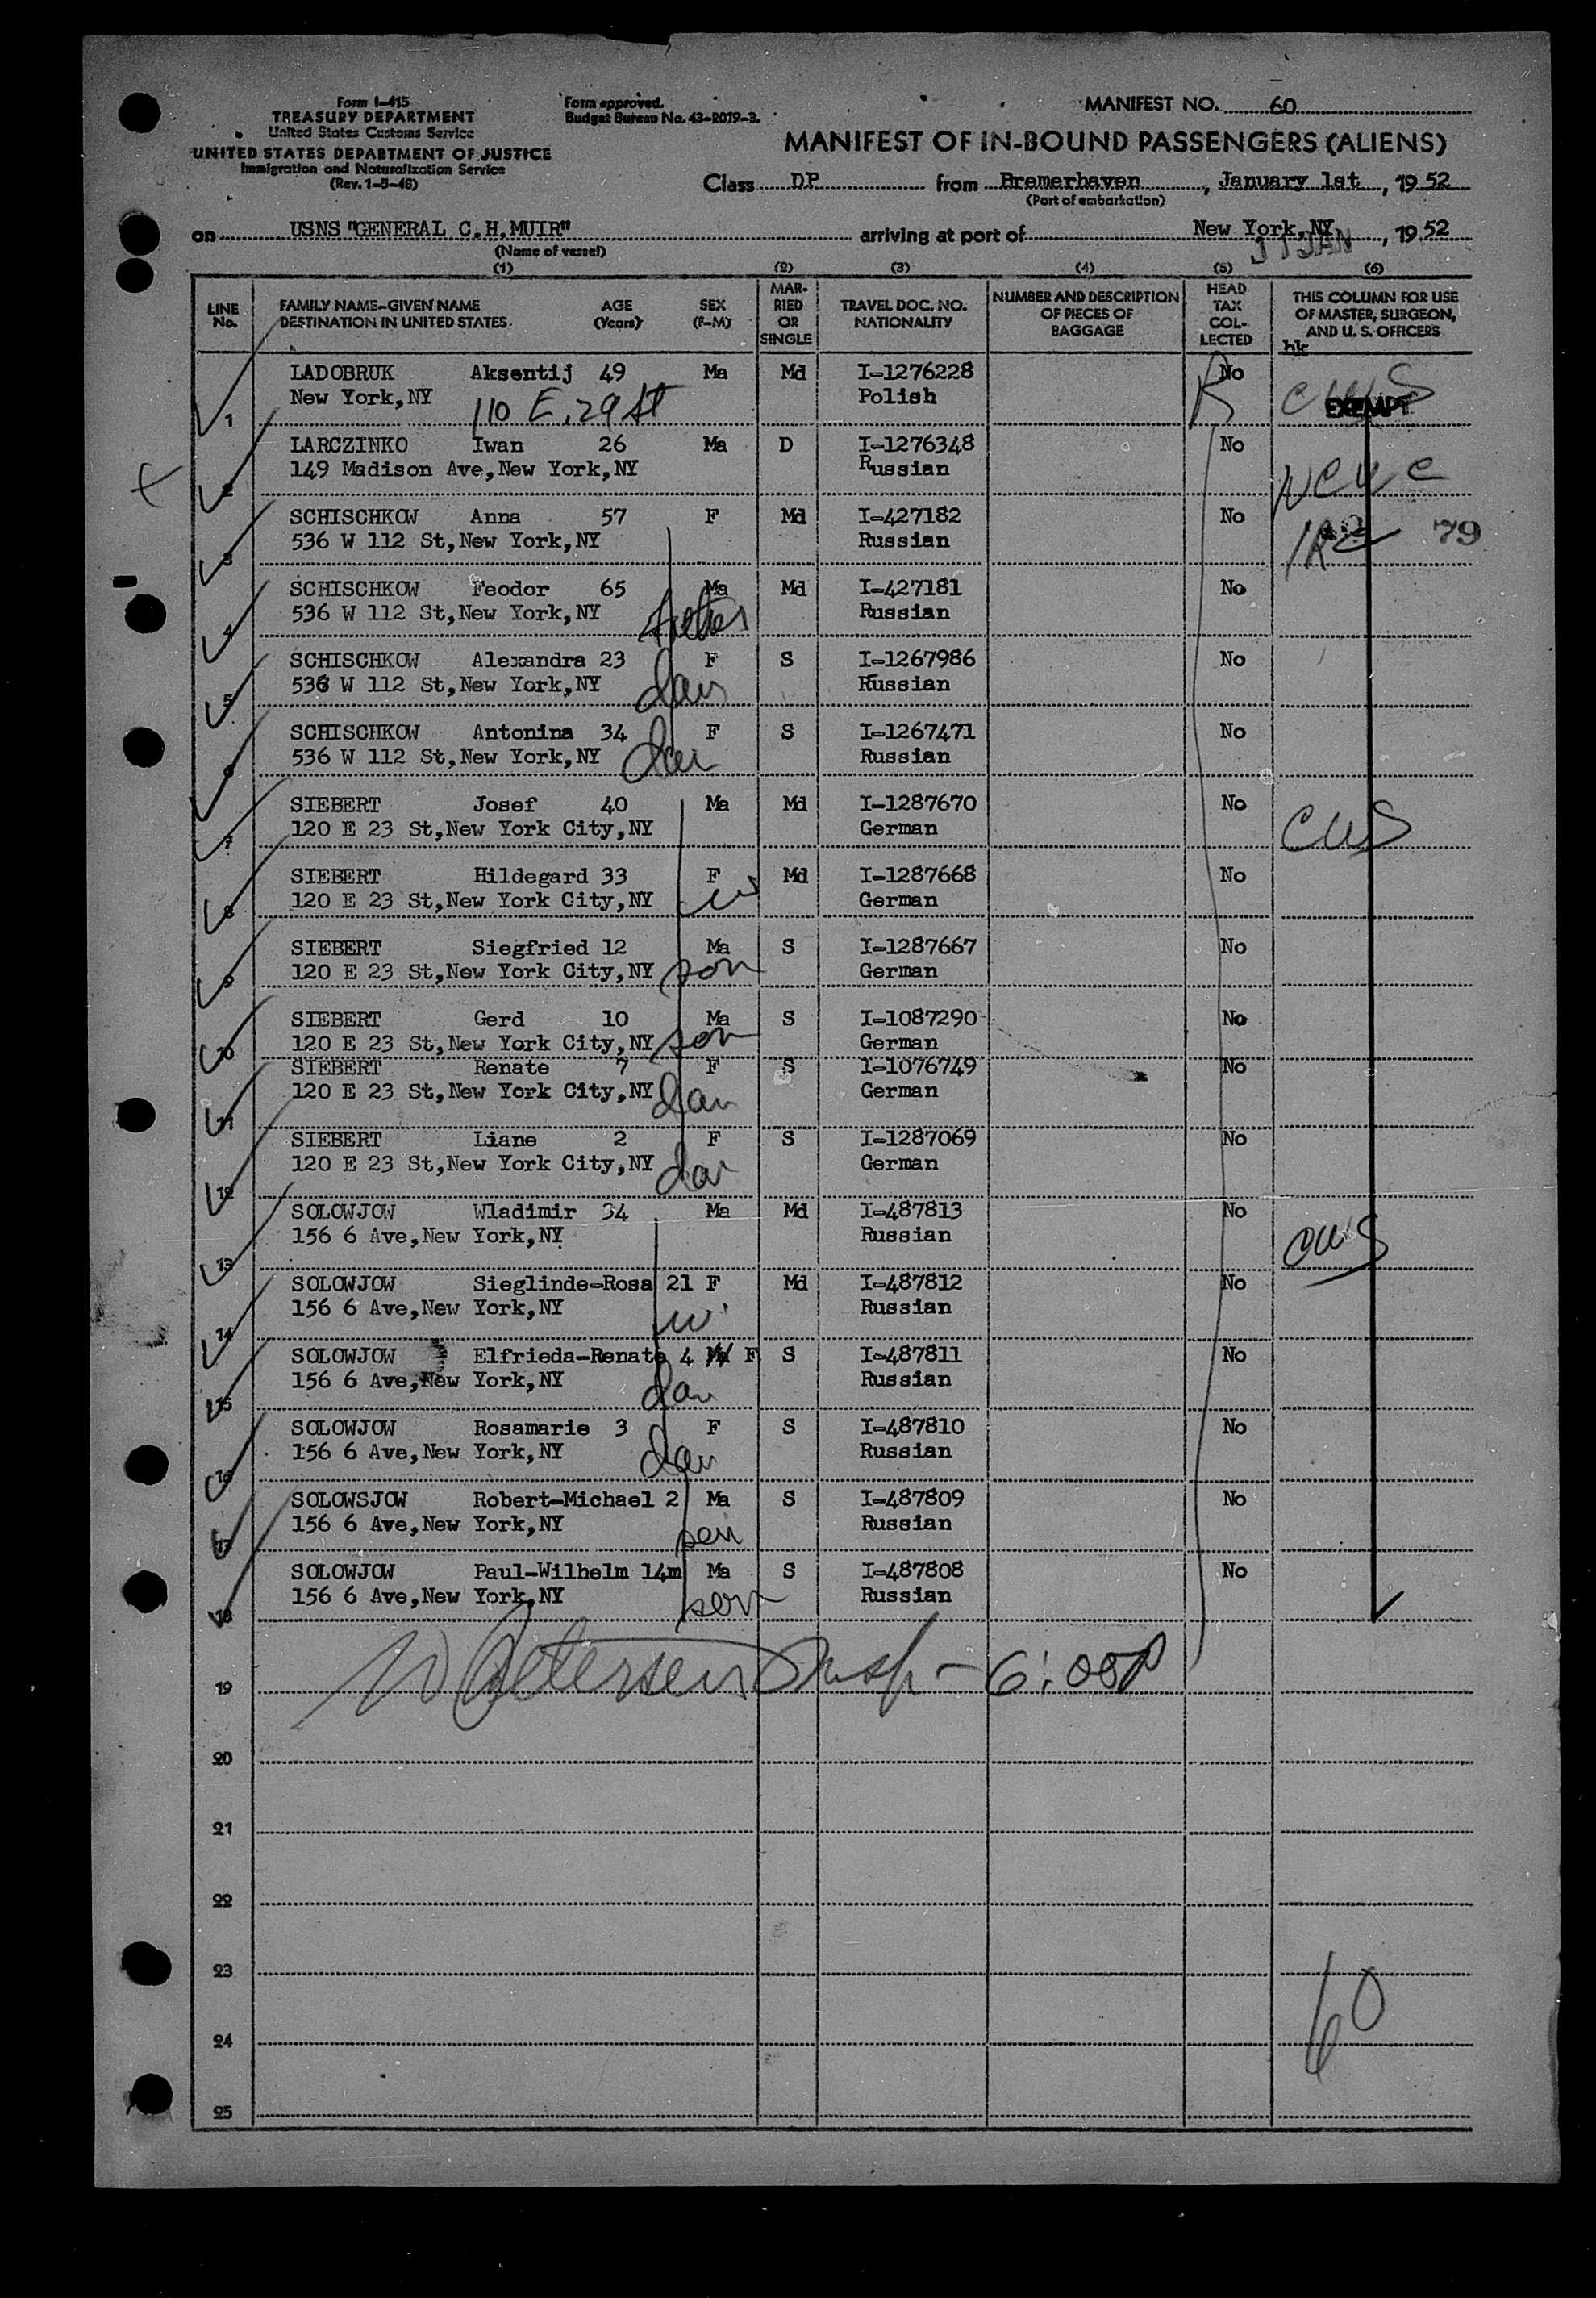 Form I-415
TREASURY DEPARTMENT
United States Customs Service
UNITED STATES DEPARTMENT OF JUSTICE
Immigration and Naturalization Service
(Rev. 1-5-48)
Form approved.
Budget Bureau No. 43-R079-3.
MANIFEST NO. 60
MANIFEST OF IN-BOUND PASSENGERS (ALIENS)
Class DP from Bremerhaven, January 1st, 1952
(Port of embarkation)
on USNS "GENERAL C.H.MUIR" arriving at port of New York,NY, 1952
(Name of vessel)
JAN
(1) (2) (3) (4) (5) (6)
LINE No. FAMILY NAME-GIVEN NAME DESTINATION IN UNITED STATES. AGE (Years) SEX (F-M) MARRIED OR SINGLE TRAVEL DOC. NO. NATIONALITY NUMBER AND DESCRIPTION OF PIECES OF BAGGAGE HEAD TAX COLLECTED THIS COLUMN FOR USE OF MASTER, SURGEON, AND U. S. OFFICERS
hk
LADOBRUK Aksentij 49 Ma Md I-1276228 No CWS
1 New York,NY 110 E. 29 St Polish R EXEMPT
LARCZINKO Iwan 26 Ma D I-1276348 No
2 149 Madison Ave,New York,NY Russian
SCHISCHKOW Anna 57 F Md I-427182 No 79
3 536 W 112 St,New York,NY Russian
SCHISCHKOW Feodor 65 Ma Md I-427181 No
4 536 W 112 St,New York,NY Russian
SCHISCHKOW Alexandra 23 F S I-1267986 No
5 536 W 112 St,New York,NY dau Russian
SCHISCHKOW Antonina 34 F S I-1267471 No
6 536 W 112 St,New York,NY dau Russian
SIEBERT Josef 40 Ma Md I-1287670 No
7 120 E 23 St,New York City,NY German CWS
SIEBERT Hildegard 33 F Md I-1287668 No
8 120 E 23 St,New York City,NY German
SIEBERT Siegfried 12 Ma S I-1287667 No
9 120 E 23 St,New York City,NY son German
SIEBERT Gerd 10 Ma S I-1087290 No
10 120 E 23 St,New York City,NY son German
SIEBERT Renate 7 F S I-1076749 No
11 120 E 23 St,New York City,NY dau German
SIEBERT Liane 2 F S I-1287069 No
12 120 E 23 St,New York City,NY dau German
SOLOWJOW Wladimir 34 Ma Md I-487813 No
13 156 6 Ave,New York,NY Russian CWS
SOLOWJOW Sieglinde-Rosa 21 F Md I-487812 No
14 156 6 Ave,New York,NY wi Russian
SOLOWJOW Elfrieda-Renate 4 F S I-487811 No
15 156 6 Ave,New York,NY dau Russian
SOLOWJOW Rosamarie 3 F S I-487810 No
16 156 6 Ave,New York,NY dau Russian
SOLOWSJOW Robert-Michael 2 Ma S I-487809 No
17 156 6 Ave,New York,NY son Russian
SOLOWJOW Paul-Wilhelm 14m Ma S I-487808 No
18 156 6 Ave,New York,NY son Russian
19 W Petersen Insp - 6:00P
20
21
22
23
24
60
25